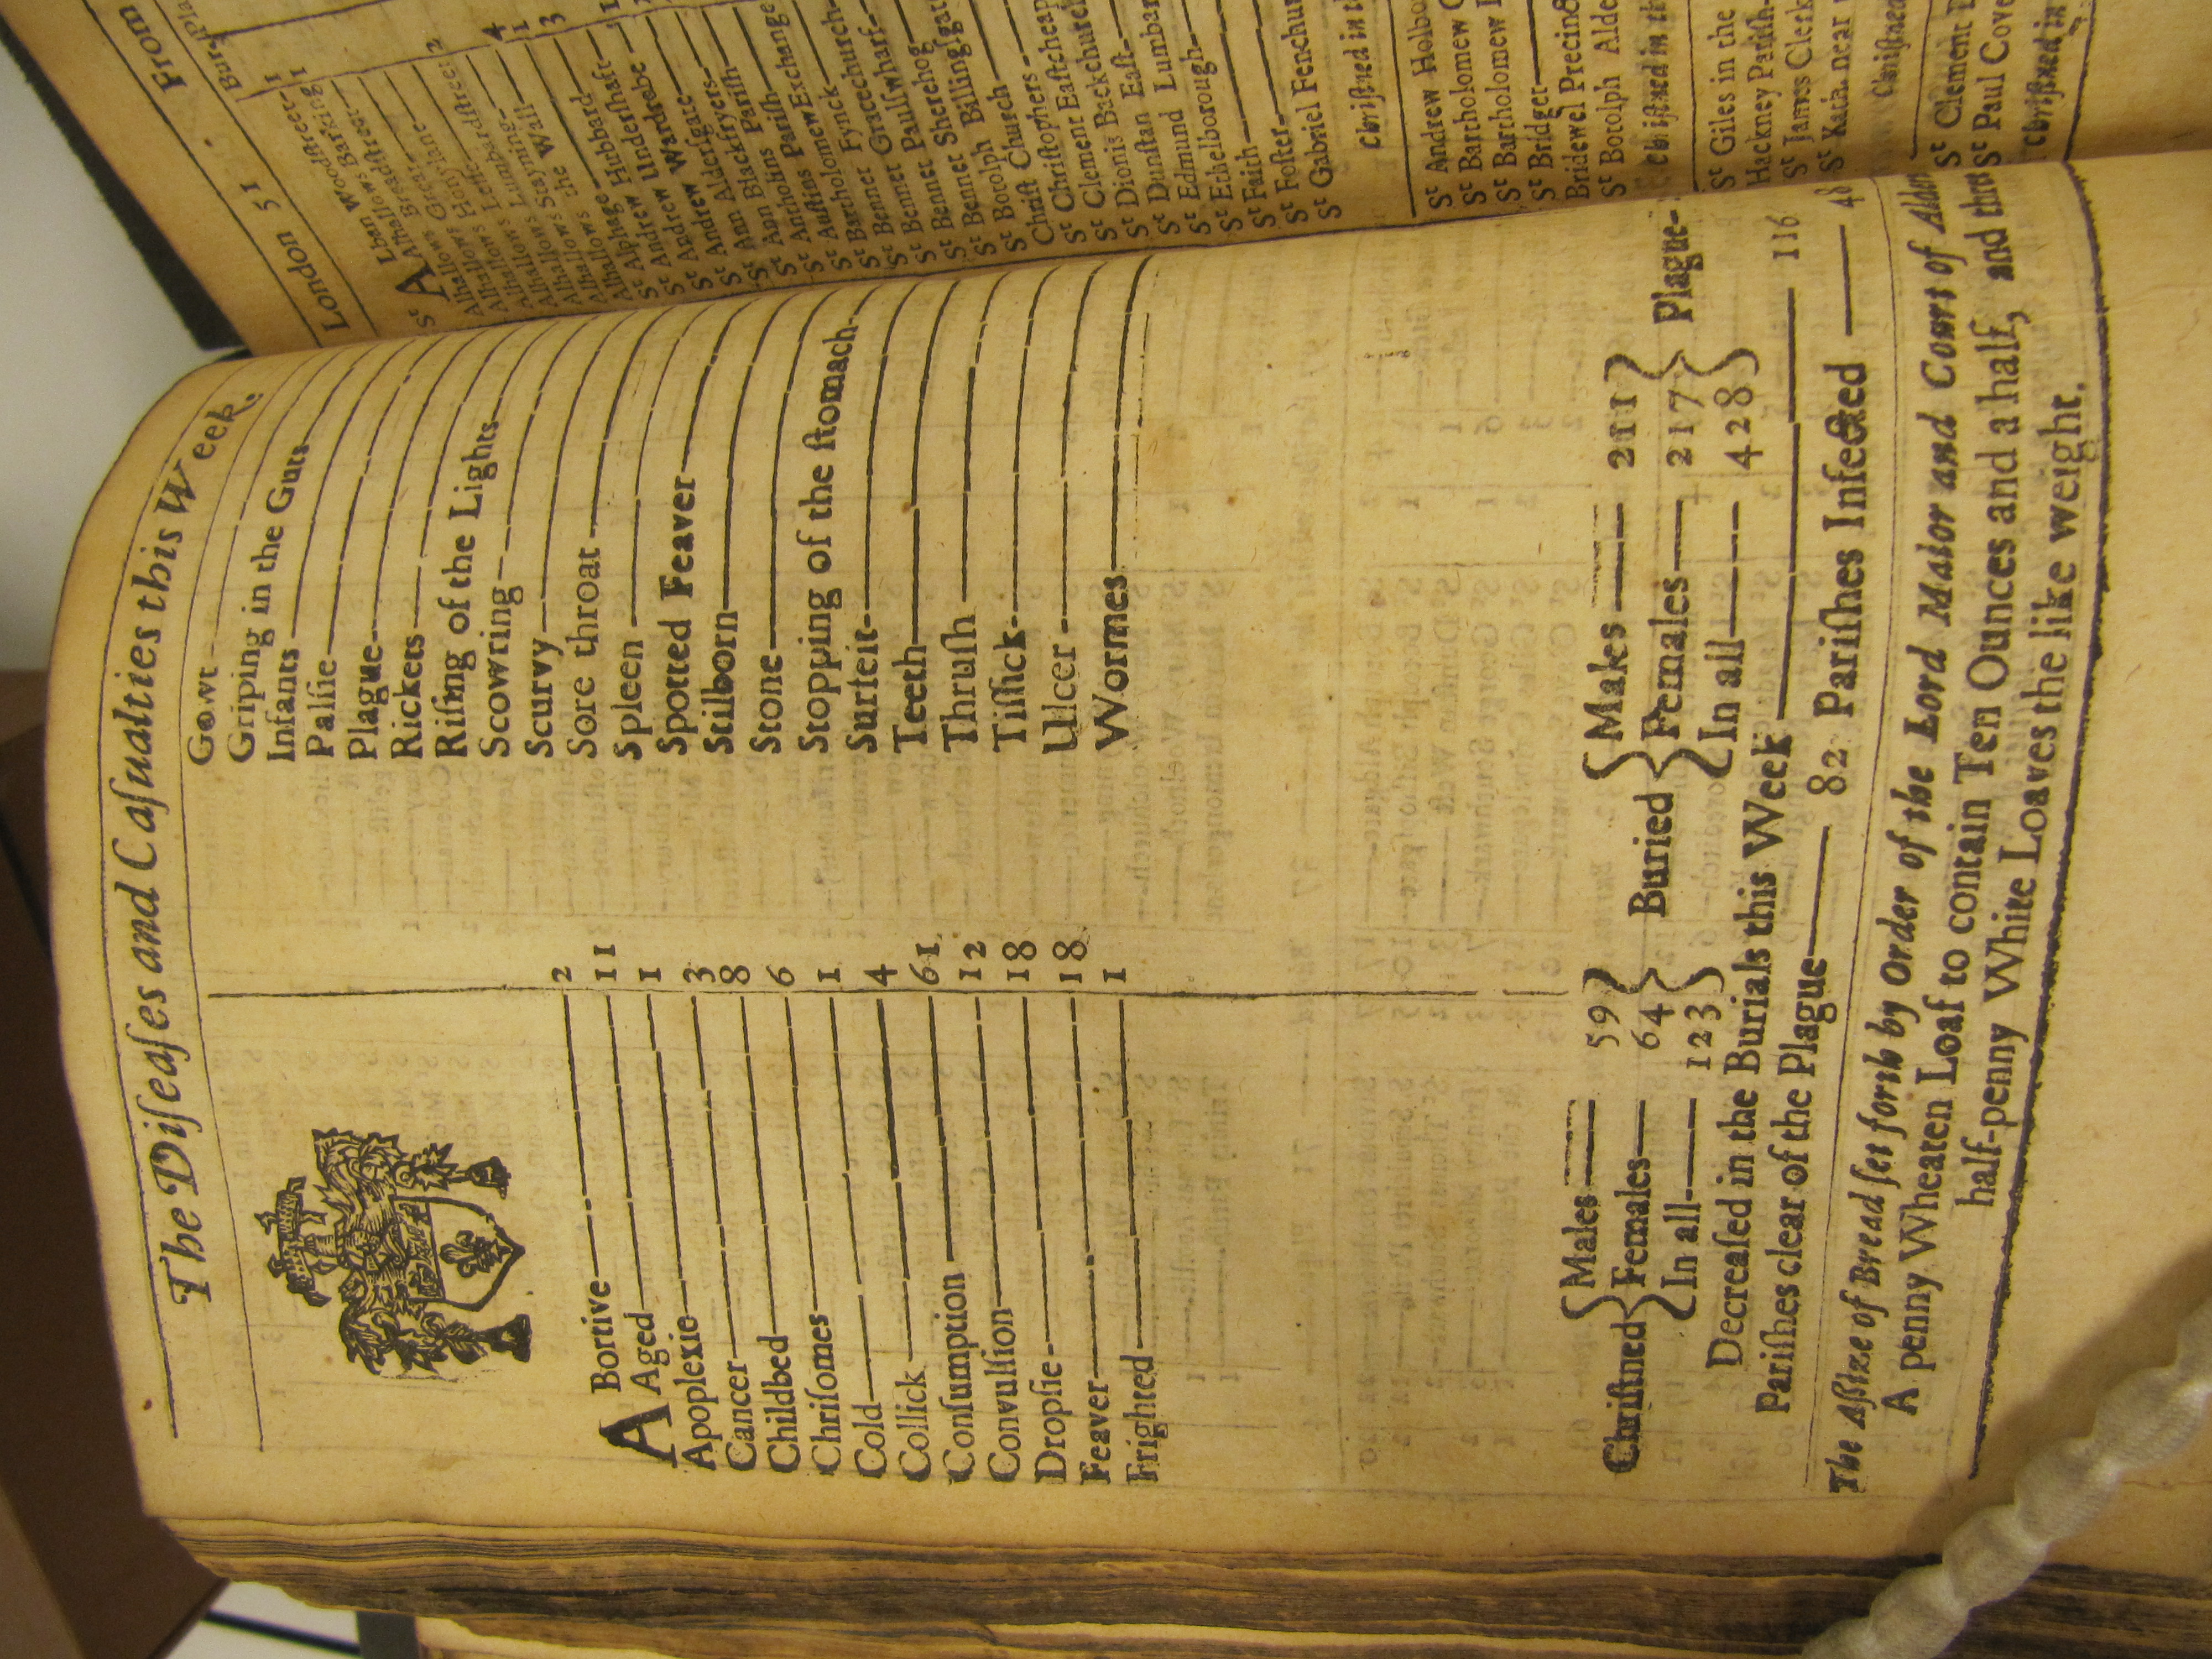 The Diſeaſes and Caſualties this Week.
ABortive 2
Aged 11
Apoplexie 1
Cancer 3
Childbed 8
Chriſomes 6
Cold 1
Collick 4
Conſumption 61
Convulſion 12
Dropſie 18
Feaver 18
Frighted 1
Gowt
Griping in the Guts
Infants
Palſie
Plague
Rickets
Riſing of the Lights
Scowring
Scurvy
Sore throat
Spleen
Spotted Feaver
Stilborn
Stone
Stopping of the ſtomach
Surfeit
Teeth
Thruſh
Tiſſick
Ulcer
Wormes
Chriſtned { Males 59 Females 64 In all 123 }
Buried { Males 211 Females 217 In all 428 } Plague
Decreaſed in the Burials this Week 116
Pariſhes clear of the Plague 82 Pariſhes Infected 48
The Aſſize of Bread ſet forth by Order of the Lord Maior and Court of Alder
A penny Wheaten Loaf to contain Ten Ounces and a half, and three
half-penny White Loaves the like weight.
London 51 From
Bur. Pla
St ALban Woodſtreet 1
Alhallows Barking 1
Alhallows Breadſtreet
Alhallows Great
Alhallows Honylane
Alhallows Leſſe 2
Alhallows Lumbardſtreet
Alhallows Stayning 4
Alhallows the Wall 1
Alphage 3
St Andrew Hubbard
St Andrew Underſhaft 1
St Andrew Wardrobe
St Ann Alderſgate
St Ann Blackfryers
St Antholins Pariſh
St Auſtins Pariſh
St Bartholomew Exchange
St Bennet Fynck
St Bennet Gracechurch
St Bennet Paulſwharf
St Bennet Sherehog
St Botolph Billingſgate
Chriſt Church
St Chriſtophers
St Clement Eaſtcheap
St Dionis Backchurch
St Dunſtan Eaſt
St Edmund Lumbar
St Ethelborough
St Faith
St Foſter
St Gabriel Fenchur
Chriſtned in t
St Andrew Holbo
St Bartholomew
St Bartholomew
St Bridget
Bridewel Precin
St Botolph Alde
Chriſtned in th
St Giles in the
Hackney Pariſh
St James Clerk
St Kath. near
Chriſtned
St Clement
St Paul Cove
Chriſtned in